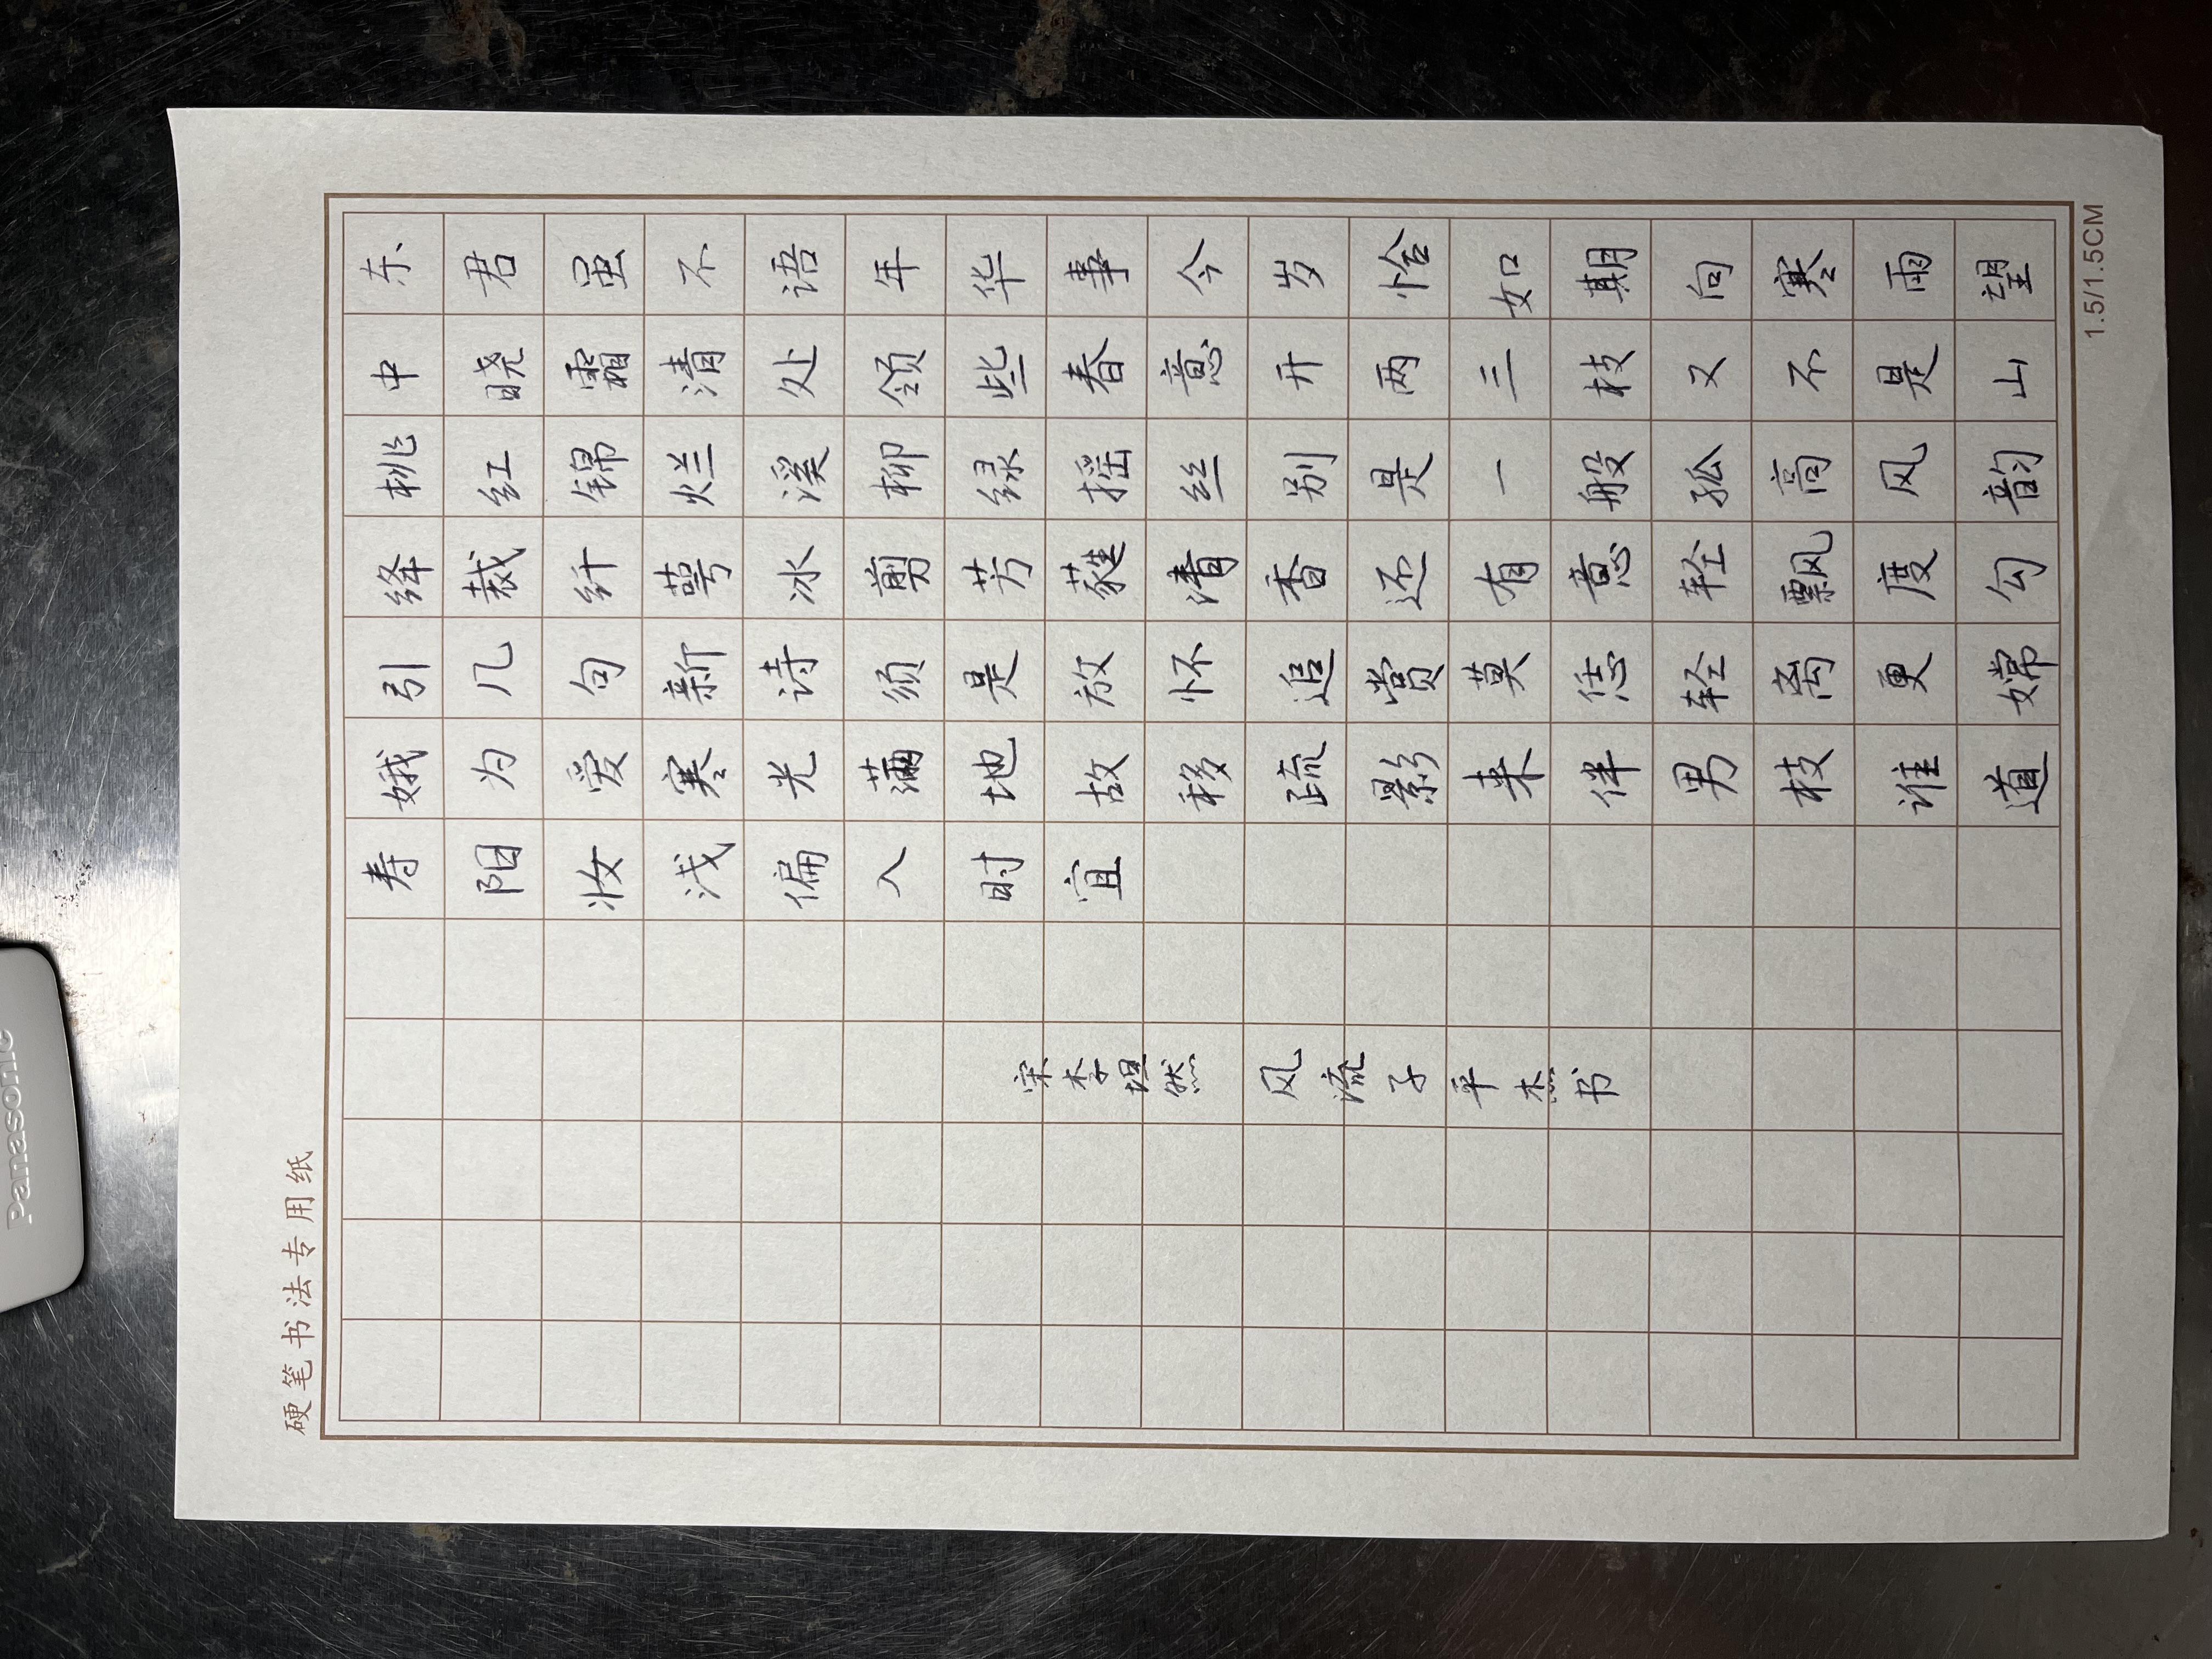 硬笔书法专用纸
东君虽不语年华事今岁恰如期向寒雨望
中晓霜清处领些春意开两三枝又不是山
桃红锦烂溪柳绿摇丝别是一般孤高风韵
绛裁纤萼冰剪芳蕤清香还有意轻飘度勾
引几句新诗须是放怀追赏莫恁轻离更嫦
娥为爱寒光满地故移疏影来伴男枝谁道
寿阳妆浅偏入时宜
宋李坦然 风流子平杰书
1.5/1.5CM
Panasonic